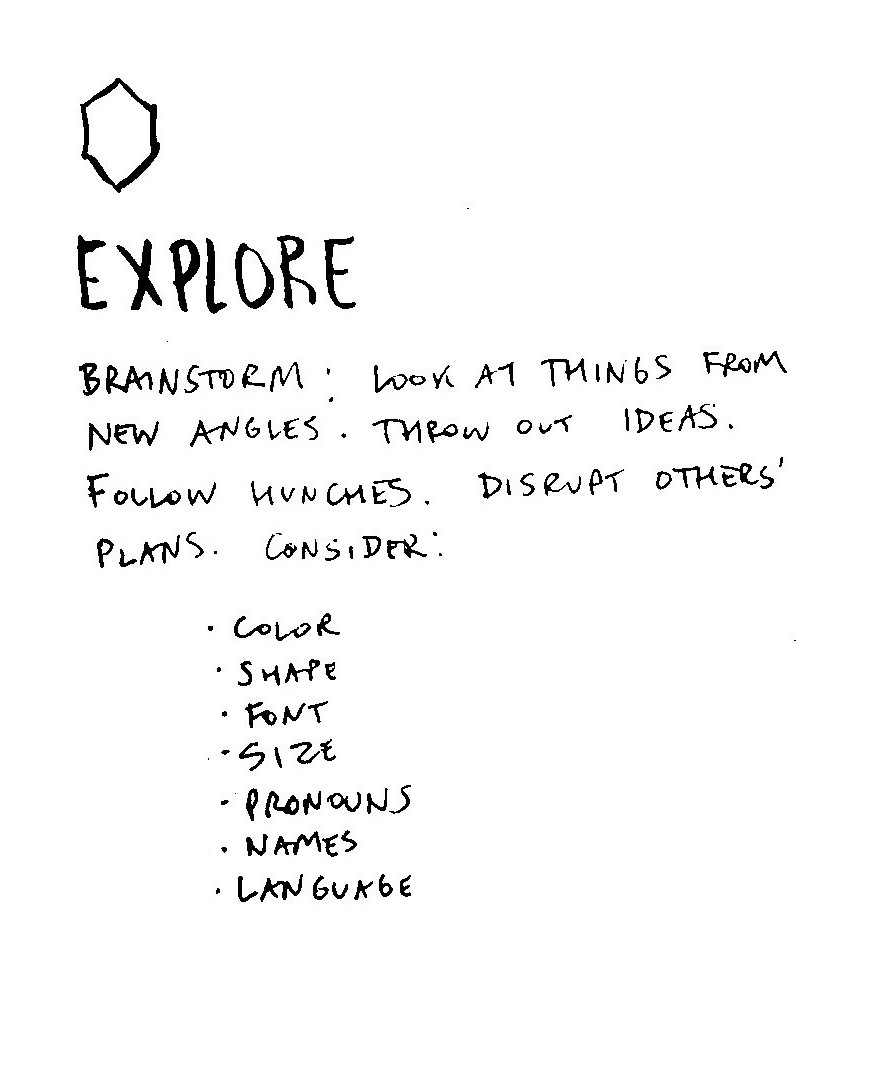 EXPLORE
BRAINSTORM: LOOK AT THINGS FROM
NEW ANGLES. THROW OUT IDEAS.
FOLLOW HUNCHES. DISRUPT OTHERS'
PLANS. CONSIDER:
· COLOR
· SHAPE
· FONT
· SIZE
· PRONOUNS
· NAMES
· LANGUAGE